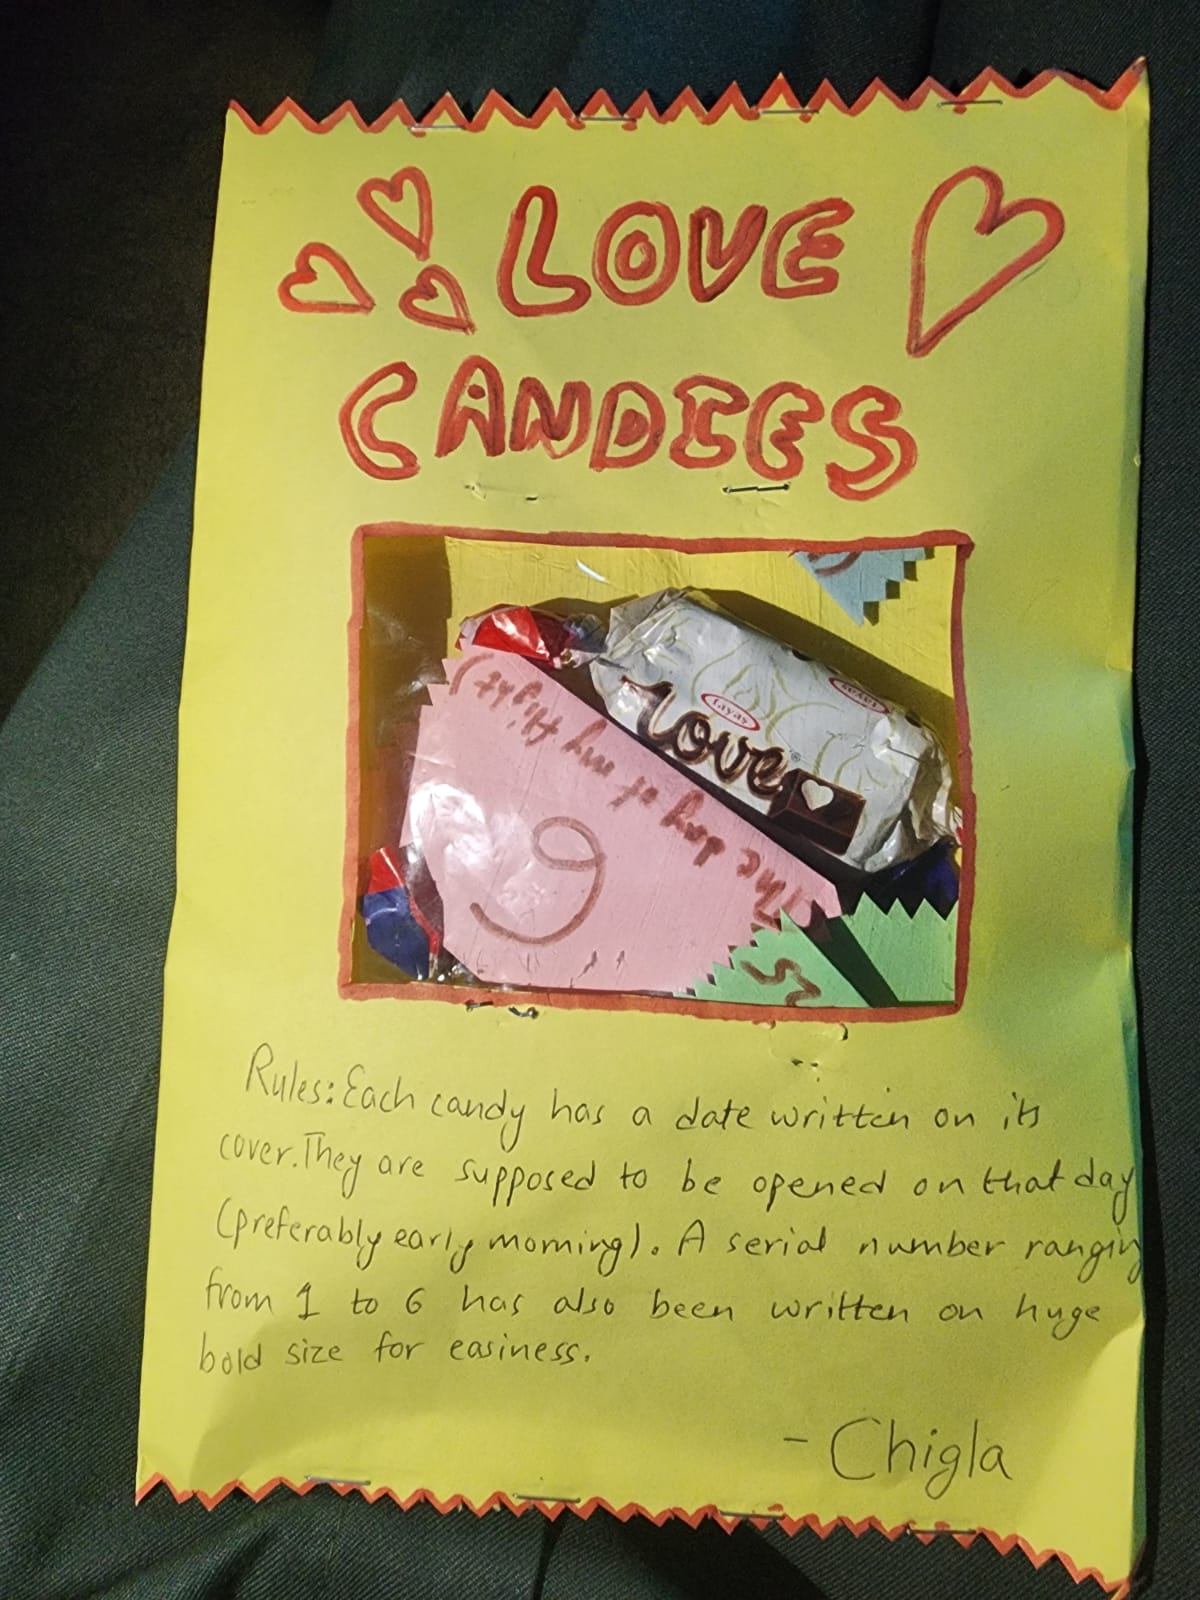 LOVE
CANDIES
Tayas
love
(The day of my flight)
6
5
Rules: Each candy has a date written on its
cover. They are supposed to be opened on that day
(preferably early morning). A serial number ranging
from 1 to 6 has also been written on huge
bold size for easiness.
- Chigla